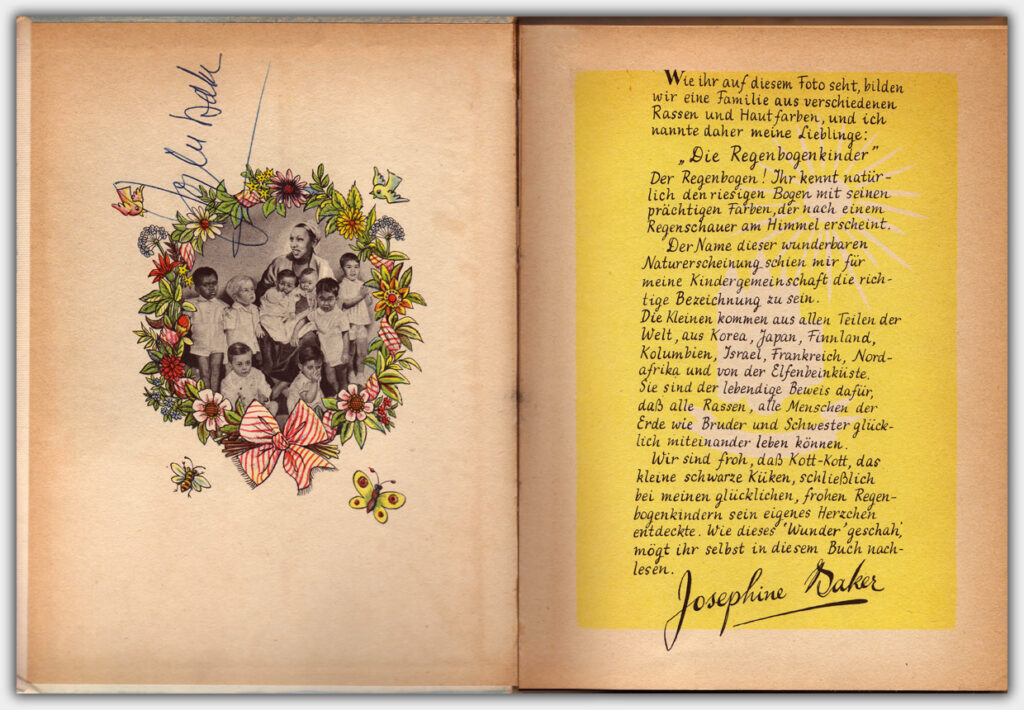 Wie ihr auf diesem Foto seht, bilden
wir eine Familie aus verschiedenen
Rassen und Hautfarben, und ich
nannte daher meine Lieblinge:
„Die Regenbogenkinder”
Der Regenbogen! Ihr kennt natür-
lich den riesigen Bogen mit seinen
prächtigen Farben, der nach einem
Regenschauer am Himmel erscheint.
Der Name dieser wunderbaren
Naturerscheinung schien mir für
meine Kindergemeinschaft die rich-
tige Bezeichnung zu sein.
Die Kleinen kommen aus allen Teilen der
Welt, aus Korea, Japan, Finnland,
Kolumbien, Israel, Frankreich, Nord-
afrika und von der Elfenbeinküste.
Sie sind der lebendige Beweis dafür,
daß alle Rassen, alle Menschen der
Erde wie Bruder und Schwester glück-
lich miteinander leben können.
Wir sind froh, daß Kott-Kott, das
kleine schwarze Küken, schließlich
bei meinen glücklichen, frohen Regen-
bogenkindern sein eigenes Herzchen
entdeckte. Wie dieses 'Wunder' geschah,
mögt ihr selbst in diesem Buch nach-
lesen.
Josephine Baker